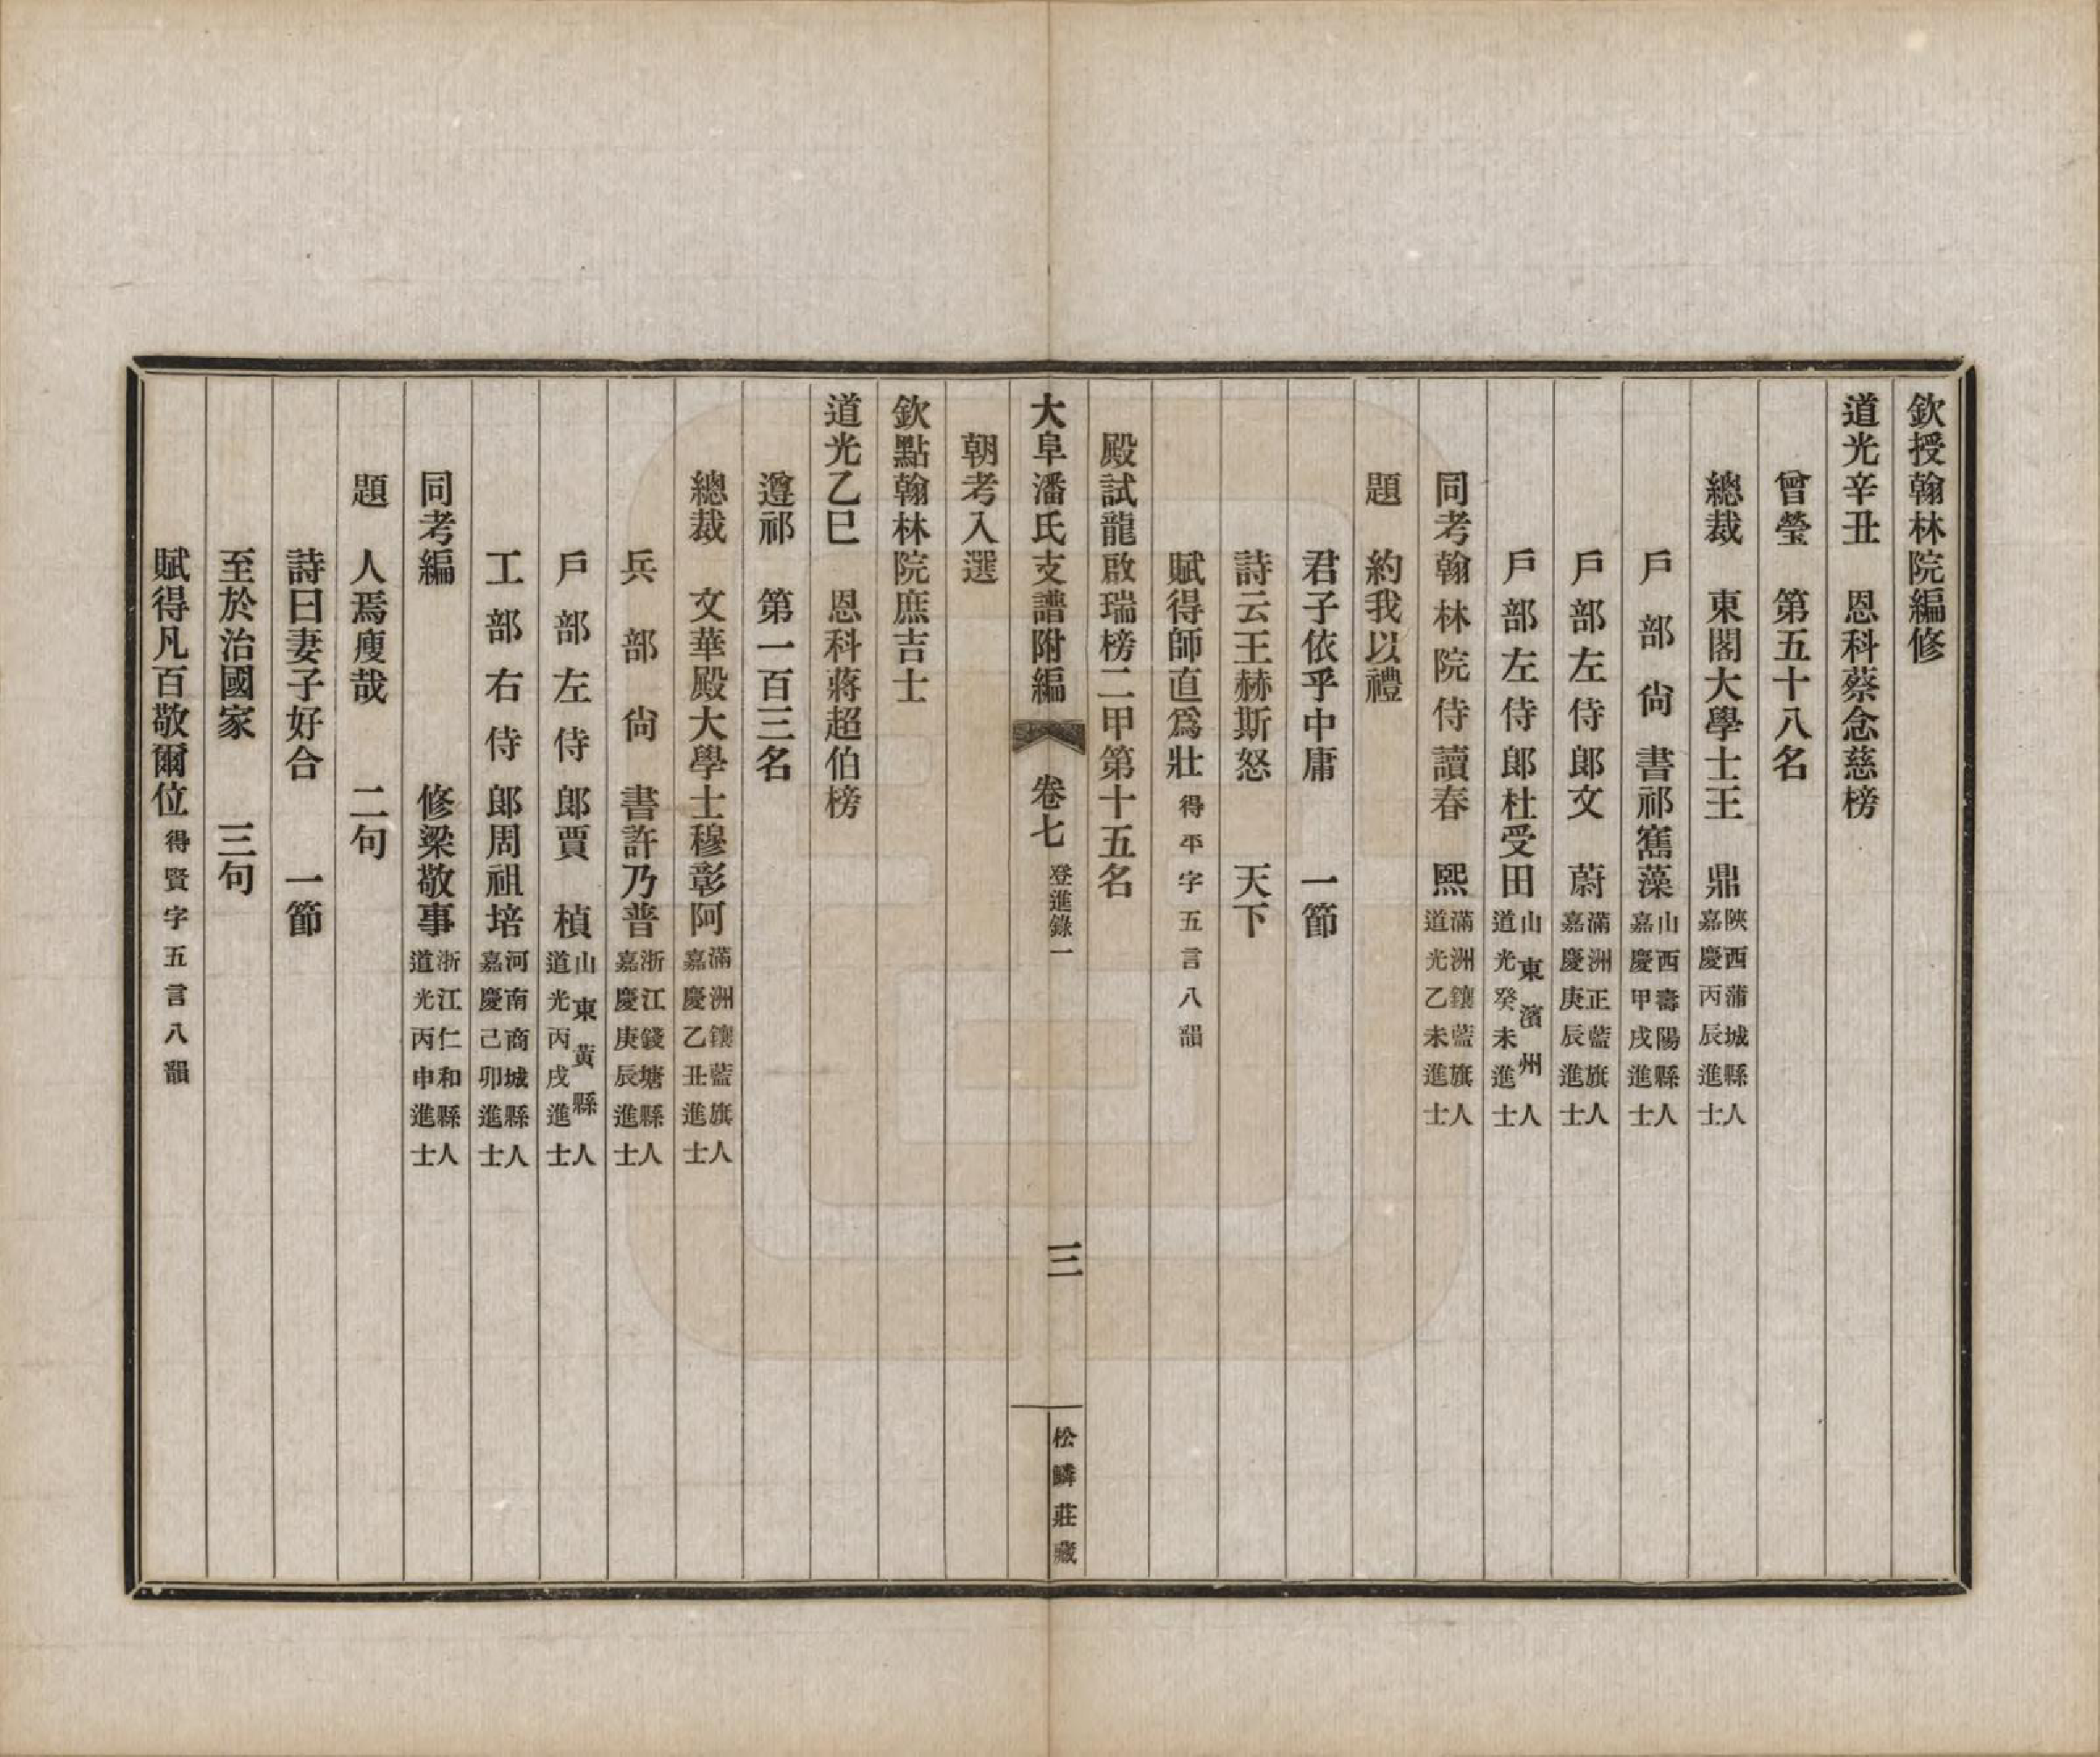 欽授翰林院編修
道光辛丑　恩科蔡念慈榜
曾瑩　第五十八名
總裁　東閣大學士王　鼎陝西蒲城縣人嘉慶丙辰進士
戶部尙書祁寯藻山西壽陽縣人嘉慶甲戌進士
戶部左侍郎文　蔚滿洲正藍旗人嘉慶庚辰進士
戶部左侍郎杜受田山東濱州人道光癸未進士
同考翰林院侍讀春　熙滿洲鑲藍旗人道光乙未進士
題　約我以禮
君子依乎中庸　一節
詩云王赫斯怒　天下
賦得師直爲壯得平字五言八韻
殿試龍啟瑞榜二甲第十五名
大阜潘氏支譜附編　卷七　登進錄一　三　松鱗莊藏
朝考入選
欽點翰林院庶吉士
道光乙巳　恩科蔣超伯榜
遵祁　第一百三名
總裁　文華殿大學士穆彰阿滿洲鑲藍旗人嘉慶乙丑進士
兵部尙書許乃普浙江錢塘縣人嘉慶庚辰進士
戶部左侍郎賈　楨山東黃縣人道光丙戌進士
工部右侍郎周祖培河南商城縣人嘉慶己卯進士
同考編　修梁敬事浙江仁和縣人道光丙申進士
題　人焉廋哉　二句
詩曰妻子好合　一節
至於治國家　三句
賦得凡百敬爾位得賢字五言八韻